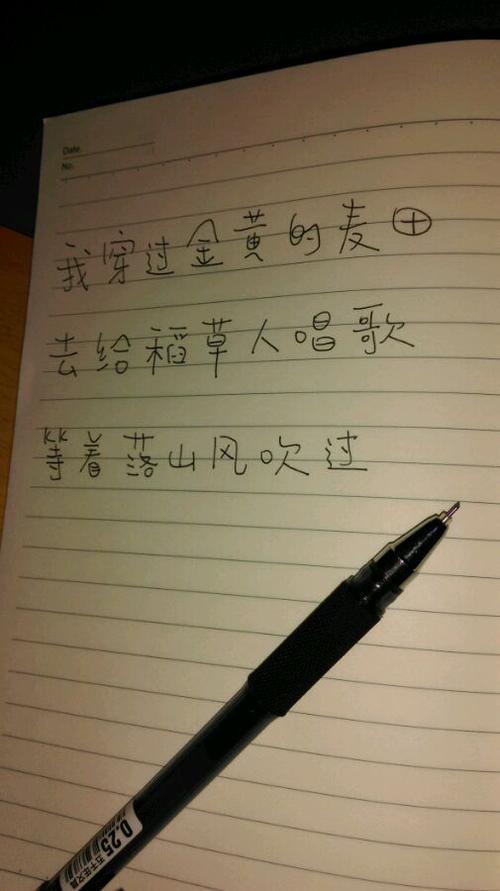 Date.
No.
我穿过金黄的麦田
去给稻草人唱歌
等着落山风吹过
0.25